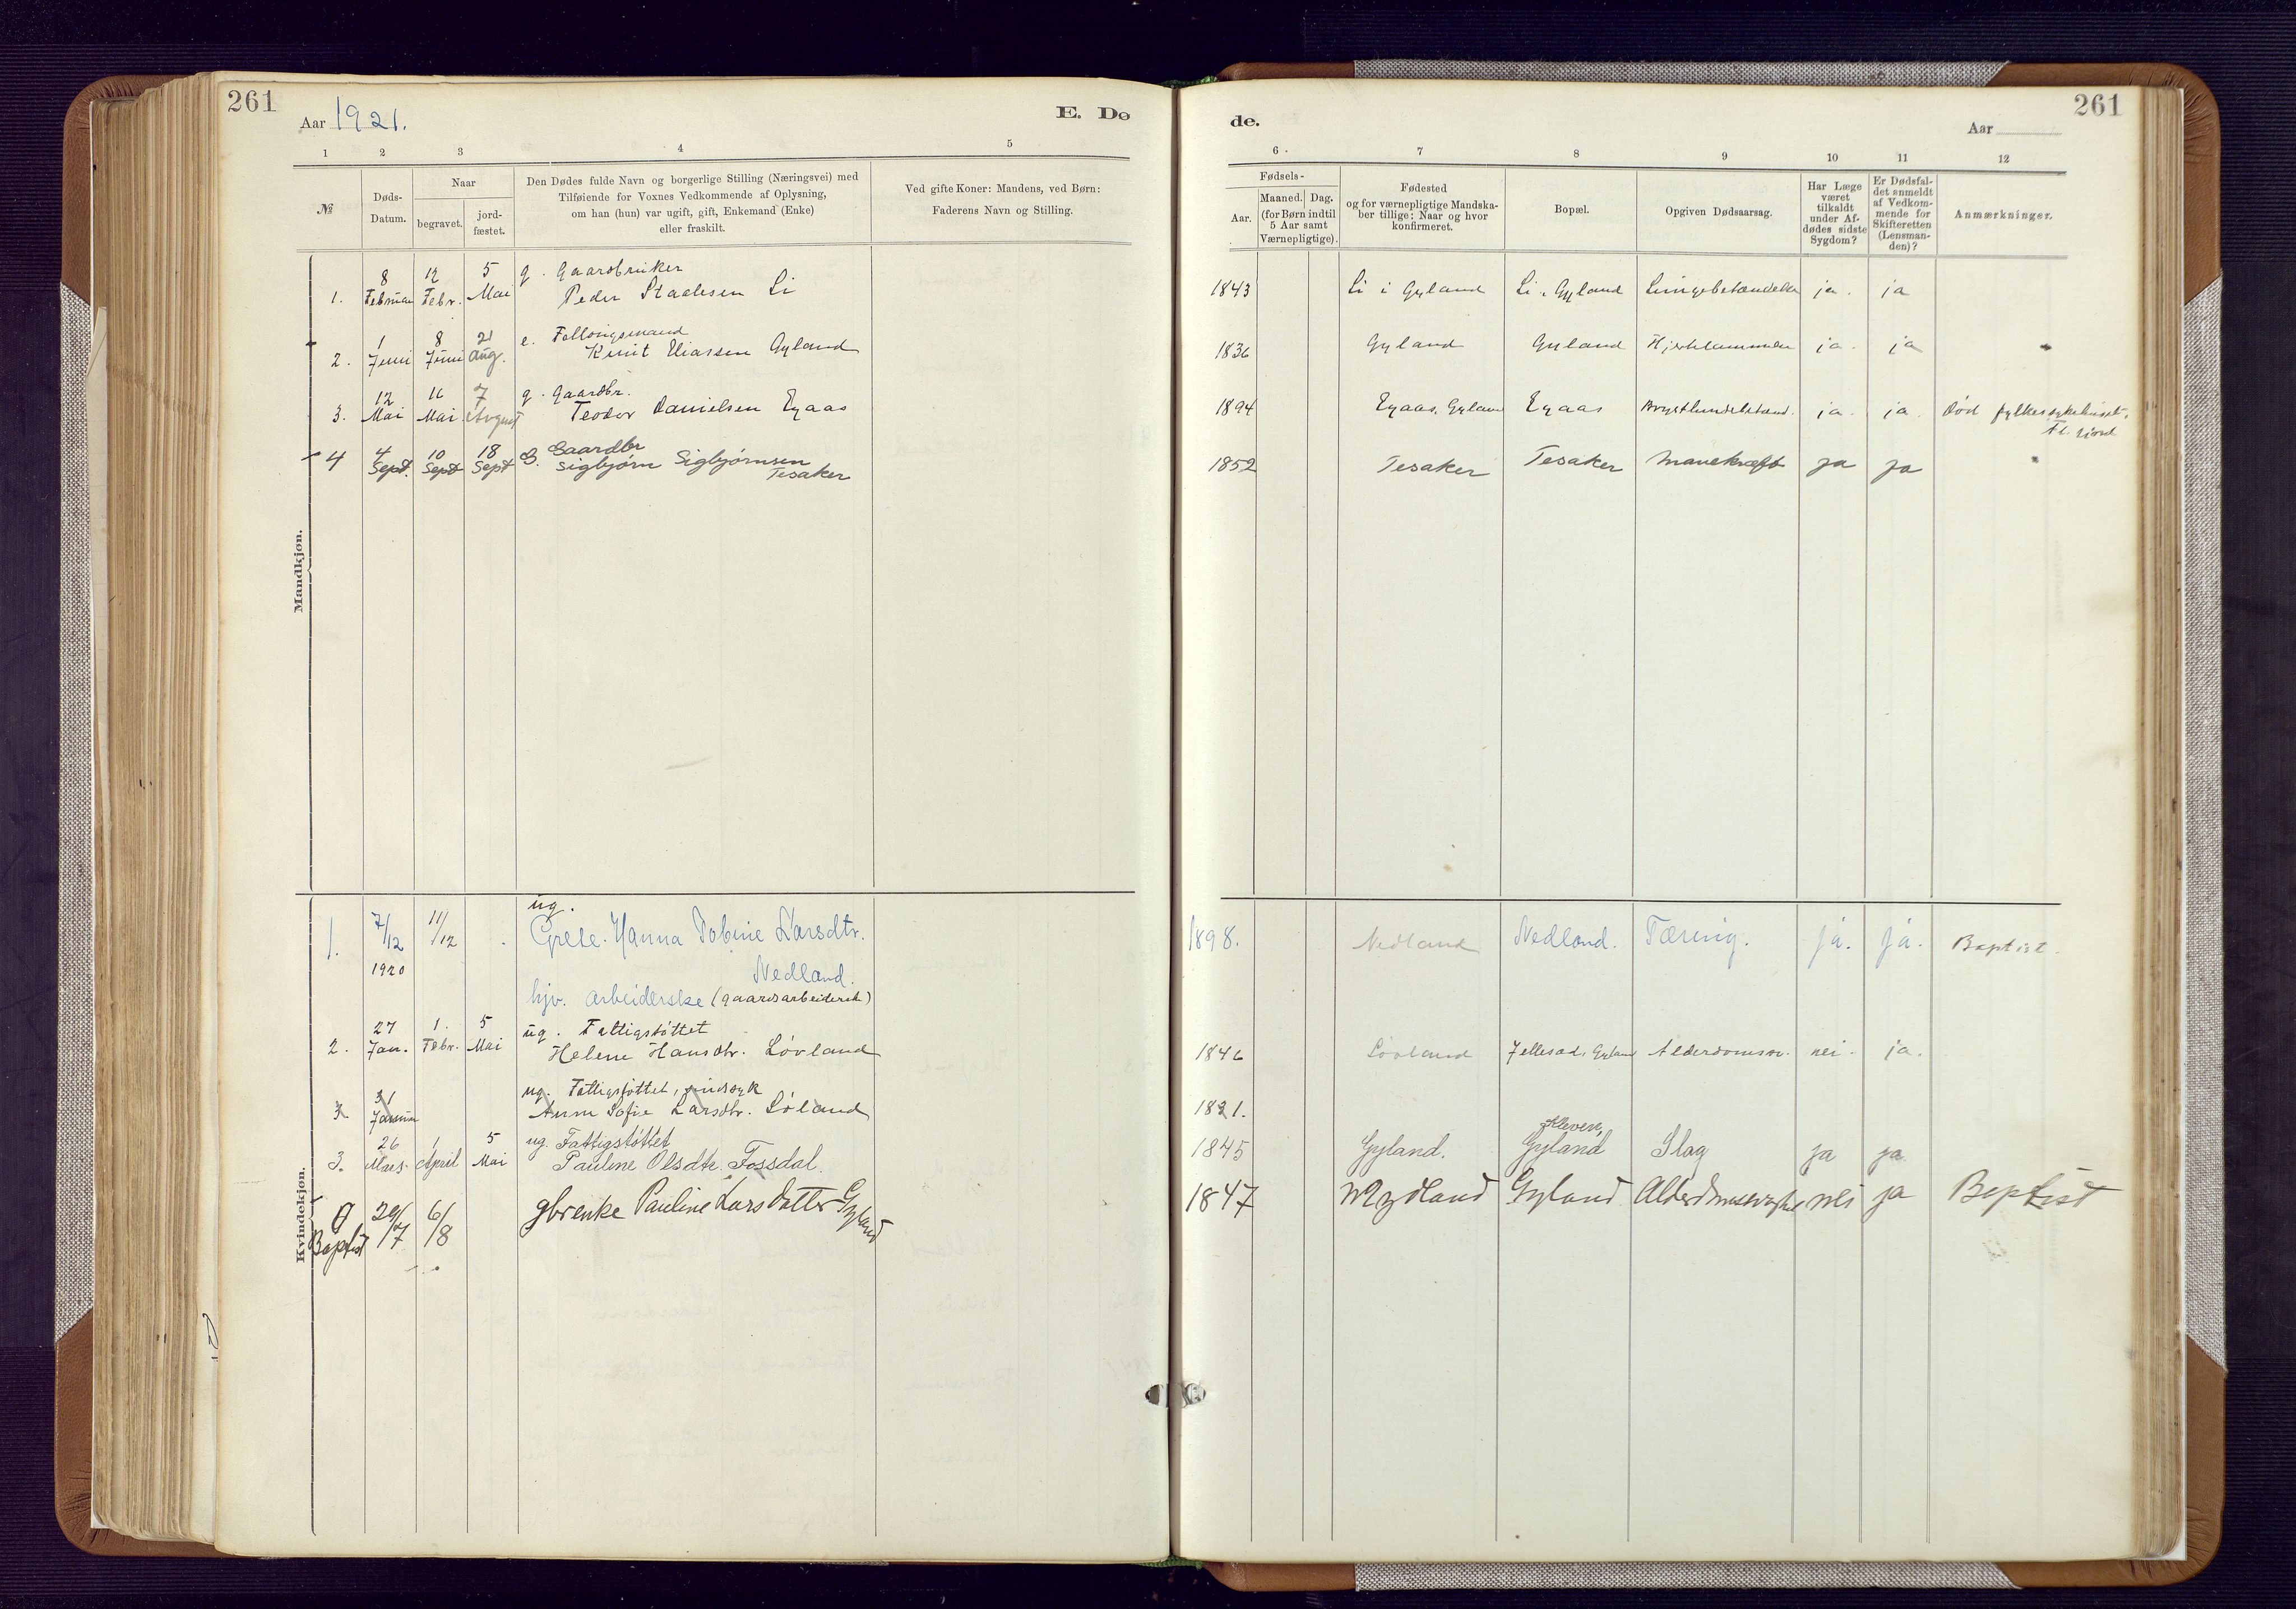 261
Aar 1921.
E. Dø
de.
Aar
261
1 2 3 4 5
6 7 8 9 10 11 12
№
Døds-
Datum.
Naar
begravet.
jord-
fæstet.
Den Dødes fulde Navn og borgerlige Stilling (Næringsvei) med
Tilføiende for Voxnes Vedkommende af Oplysning,
om han (hun) var ugift, gift, Enkemand (Enke)
eller fraskilt.
Ved gifte Koner: Mandens, ved Børn:
Faderens Navn og Stilling.
Fødsels-
Aar.
Maaned. Dag.
(for Børn indtil
5 Aar samt
Værnepligtige).
Fødested
og for værnepligtige Mandska-
ber tillige: Naar og hvor
konfirmeret.
Bopæl.
Opgiven Dødsaarsag.
Har Læge
været
tilkaldt
under Af-
dødes sidste
Sygdom?
Er Dødsfal-
det anmeldt
af Vedkom-
mende for
Skifteretten
(Lensman-
den)?
Anmærkninger.
Mandkjøn.
8 12 5 g. Gaardbruker
1. Februar Febr. Mai Peder Staalesen Li 1843 Li i Gyland Li i Gyland Lungebetændelse ja. ja
1 8 21 e. Follougsmand
2. Juni Juni Aug. Knut Eliassen Gyland 1836 Gyland Gyland Hjerte ja. ja
12 16 7 g. Gaardbr.
3. Mai Mai August Teodor Danielsen Egaas 1894 Egaas, Gyland Egaas ja. ja. Død fylkessykehuset,
4 10 18 G. Gaardbr
4 Sept. Sept Sept Sigbjørn Sigbjørnsen 1852 Tesaker Tesaker Mavekræft ja ja
Tesaker
Kvindekjøn.
ug.
1. 7/12 11/12 Grete Hanna Tobine Larsdtr. 1898. Nedland Nedland. Tæring. ja. ja. Baptist.
1920 Nedland.
hjv. arbeiderske (gaardsarbeidersk)
27 1. 5 ug. Fattigstøttet
2. Jan. Febr. Mai Helene Hansdtr. Løvland 1846 Løvland Jellesad, Gyland Alderdomssv. nei. ja.
31 ug. Fattigstøttet, sindsyk
3. Januar Anne Sofie Larsdtr. Løland 1821.
26 1 5 ug. Fattigstøttet Kleven,
3. Mars. April Mai Pauline Olsdtr. Fossdal. 1845 Gyland. Gyland Slag ja ja
29/7 6/8 gbrenke Pauline Larsdatter Gyland 1847 Mydland Gyland nei ja Baptist
Baptist